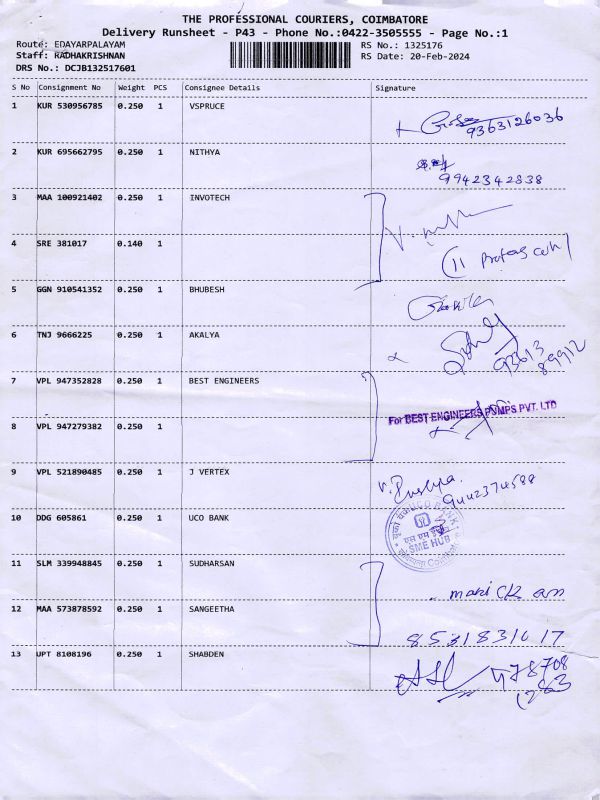 THE PROFESSIONAL COURIERS, COIMBATORE
Delivery Runsheet - P43 - Phone No.:0422-3505555 - Page No.:1
Route: EDAYARPALAYAM
RS No.: 1325176
Staff: RADHAKRISHNAN
RS Date: 20-Feb-2024
DRS No.: DCJB132517601
S No Consignment No Weight PCS Consignee Details Signature
1 KUR 530956785 0.250 1 VSPRUCE
9363126036
2 KUR 695662795 0.250 1 NITHYA
9942342838
3 MAA 100921402 0.250 1 INVOTECH
4 SRE 381017 0.140 1
5 GGN 910541352 0.250 1 BHUBESH
6 TNJ 9666225 0.250 1 AKALYA
93613
89912
7 VPL 947352828 0.250 1 BEST ENGINEERS
For BEST ENGINEERS PUMPS PVT. LTD
8 VPL 947279382 0.250 1
9 VPL 521890485 0.250 1 J VERTEX
9442374588
10 DDG 605861 0.250 1 UCO BANK
UCO BANK
SME HUB
11 SLM 339948845 0.250 1 SUDHARSAN
12 MAA 573878592 0.250 1 SANGEETHA
8531831017
13 UPT 8108196 0.250 1 SHABDEN